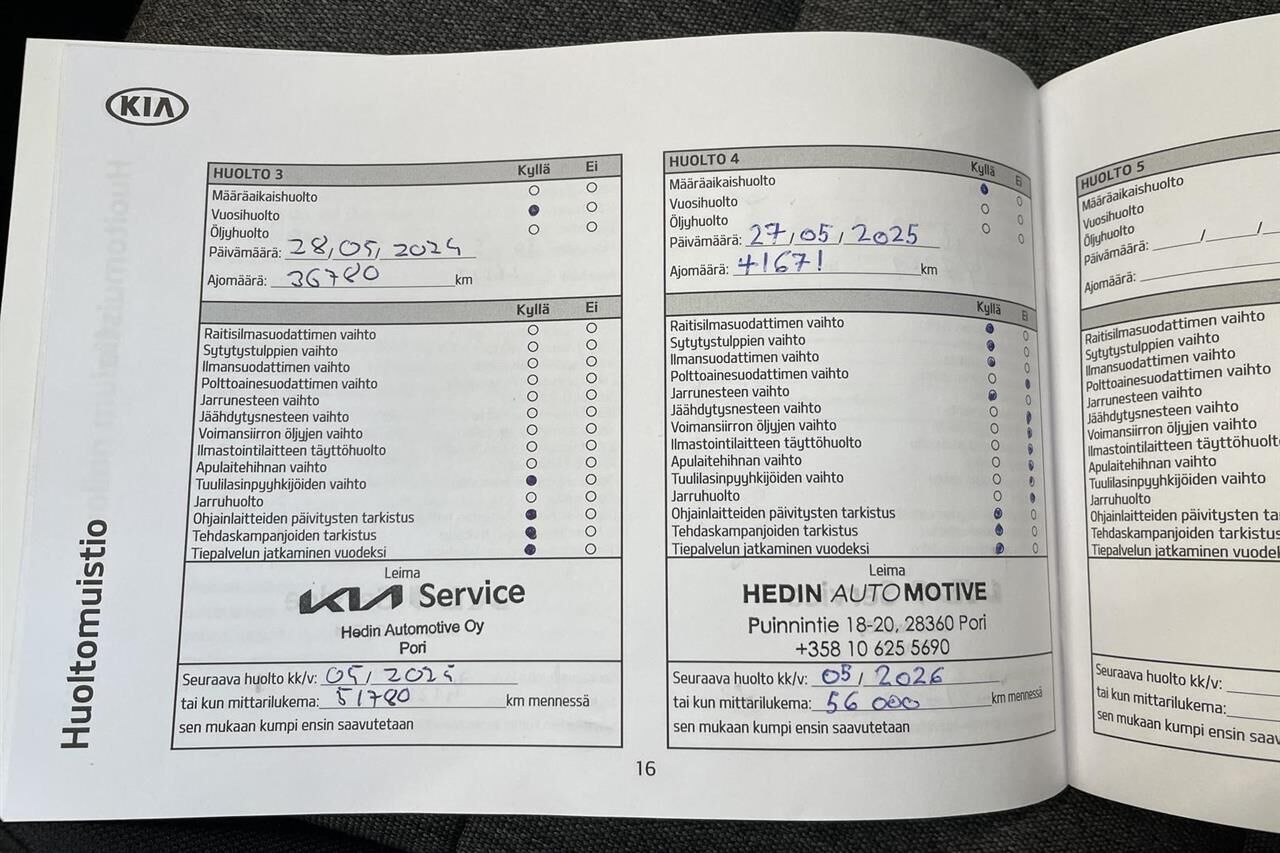 KIA
HUOLTO 3 Kyllä Ei
Määräaikaishuolto
Vuosihuolto
Öljyhuolto
Päivämäärä: 28/05/2024
Ajomäärä: 36780 km
Kyllä Ei
Raitisilmasuodattimen vaihto
Sytytystulppien vaihto
Ilmansuodattimen vaihto
Polttoainesuodattimen vaihto
Jarrunesteen vaihto
Jäähdytysnesteen vaihto
Voimansiirron öljyjen vaihto
Ilmastointilaitteen täyttöhuolto
Apulaitehihnan vaihto
Tuulilasinpyyhkijöiden vaihto
Jarruhuolto
Ohjainlaitteiden päivitysten tarkistus
Tehdaskampanjoiden tarkistus
Tiepalvelun jatkaminen vuodeksi
Leima
KIA Service
Hedin Automotive Oy
Pori
Seuraava huolto kk/v: 05/
tai kun mittarilukema: 51780 km mennessä
sen mukaan kumpi ensin saavutetaan
HUOLTO 4 Kyllä Ei
Määräaikaishuolto
Vuosihuolto
Öljyhuolto
Päivämäärä: 27/05/2025
Ajomäärä: 41671 km
Kyllä Ei
Raitisilmasuodattimen vaihto
Sytytystulppien vaihto
Ilmansuodattimen vaihto
Polttoainesuodattimen vaihto
Jarrunesteen vaihto
Jäähdytysnesteen vaihto
Voimansiirron öljyjen vaihto
Ilmastointilaitteen täyttöhuolto
Apulaitehihnan vaihto
Tuulilasinpyyhkijöiden vaihto
Jarruhuolto
Ohjainlaitteiden päivitysten tarkistus
Tehdaskampanjoiden tarkistus
Tiepalvelun jatkaminen vuodeksi
Leima
HEDIN AUTOMOTIVE
Puinnintie 18-20, 28360 Pori
+358 10 625 5690
Seuraava huolto kk/v: 05/2026
tai kun mittarilukema: 56 000 km mennessä
sen mukaan kumpi ensin saavutetaan
HUOLTO 5
Määräaikaishuolto
Vuosihuolto
Öljyhuolto
Päivämäärä: / /
Ajomäärä:
Raitisilmasuodattimen vaihto
Sytytystulppien vaihto
Ilmansuodattimen vaihto
Polttoainesuodattimen vaihto
Jarrunesteen vaihto
Jäähdytysnesteen vaihto
Voimansiirron öljyjen vaihto
Ilmastointilaitteen täyttöhuolt
Apulaitehihnan vaihto
Tuulilasinpyyhkijöiden vaihto
Jarruhuolto
Ohjainlaitteiden päivitysten ta
Tehdaskampanjoiden tarkistus
Tiepalvelun jatkaminen vuodel
Seuraava huolto kk/v:
tai kun mittarilukema:
sen mukaan kumpi ensin saav
Huoltomuistio
16